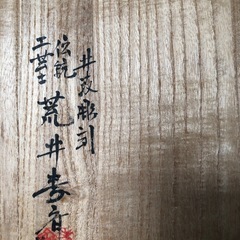 井波彫刻
伝統
工芸士
荒井寿